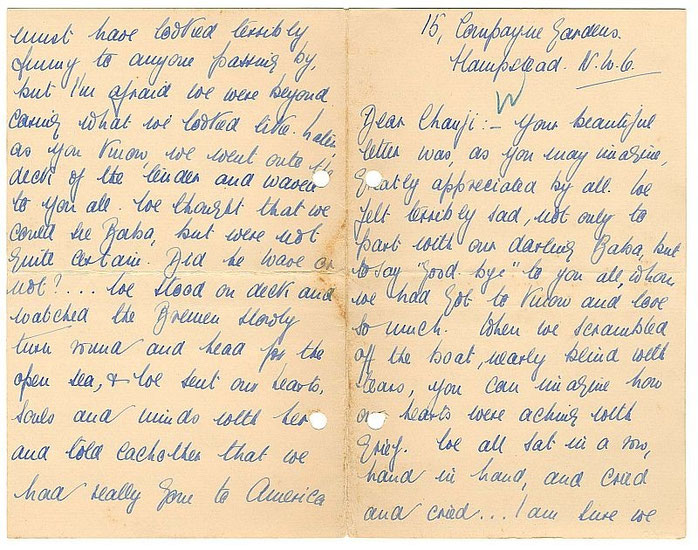 15, Compayne Gardens.
Hampstead. N.W.6.
Dear Chanji:- Your beautiful
letter was, as you may imagine,
greatly appreciated by all. We
felt terribly sad, not only to
part with our darling Baba, but
to say "good-bye" to you all, whom
we had got to know and love
so much. When we scrambled
off the boat, nearly blind with
tears, you can imagine how
our hearts were aching with
grief. We all sat in a row,
hand in hand, and cried
and cried... I am sure we
must have looked terribly
funny to anyone passing by,
but I'm afraid we were beyond
caring what we looked like. Later
as you know, we went onto the
deck of the tender and waved
to you all. We thought that we
could see Baba, but were not
quite certain. Did he wave or
not?... We stood on deck and
watched the Bremen slowly
turn round and head for the
open sea, & we sent our hearts,
souls and minds with her
and told eachother that we
had really gone to America